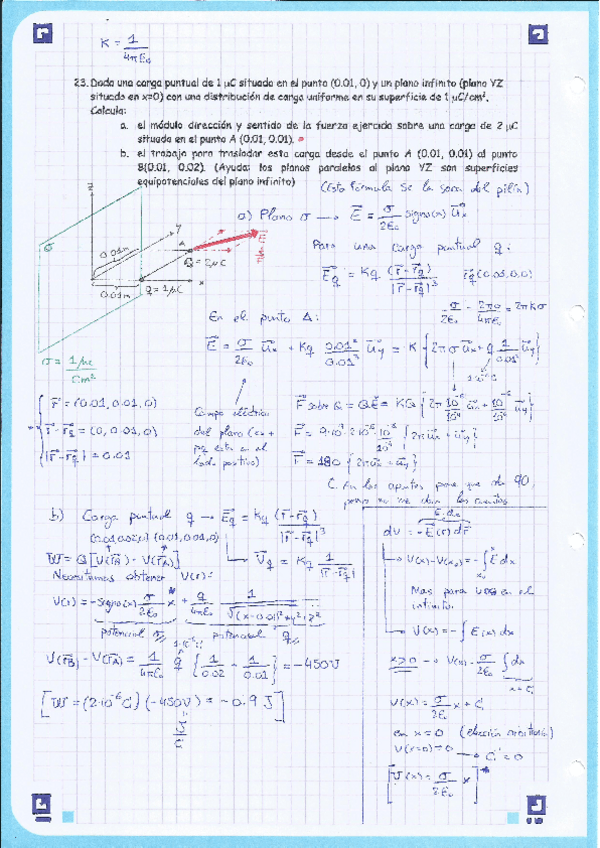 K = 1/4πε₀
23. Dada una carga puntual de 1 µC situada en el punto (0.01, 0) y un plano infinito (plano YZ
situado en x=0) con una distribución de carga uniforme en su superficie de 1 µC/cm².
Calcula:
a. el módulo dirección y sentido de la fuerza ejercida sobre una carga de 2 µC
situada en el punto A (0.01, 0.01).
b. el trabajo para trasladar esta carga desde el punto A (0.01, 0.01) al punto
B(0.01, 0.02). (Ayuda: los planos paralelos al plano YZ son superficies
equipotenciales del plano infinito)
(Esta fórmula se la saca del
a) Plano σ → E = σ/2ε₀ signo(x) Ux
Para una carga puntual q:
Eq = Kq (r-rq)/|r-rq|³ rq(0.01,0,0)
z
y
σ
0.01m
A
Q = 2µC
0.01m
q = 1µC
x
σ = 1µC/cm²
σ/2ε₀ = 2πσ/4πε₀ = 2πKσ
En el punto A:
E = σ/2ε₀ Ux + Kq 0.01/0.01³ Uy = K {2πσ Ux + q 1/0.01² Uy}
r = (0.01, 0.01, 0)
r-rq = (0, 0.01, 0)
|r-rq| = 0.01
Campo eléctrico
del plano (es +
pq está en el
lado positivo)
F sobre Q = QE = KQ
F = 180 {2πUx + Uy}
En los apuntes pone que da 90,
pero no me dan las cuentas
b) Carga puntual q → Eq = Kq (r-rq)/|r-rq|³
Vq = Kq 1/|r-rq|
W = Q[V(rA) - V(rA)]
Necesitamos obtener V(r):
V(r) = -signo(x) σ/2ε₀ x + q/4πε₀ 1/√((x-0.01)²+y²+z²)
potencial
potencial q
V(rB) - V(rA) = 1/4πε₀ q {1/0.02 - 1/0.01} = -450V
[W = (2·10⁻⁶C)(-450V) = -0.9 J]
J/C
E·dr
dV = -E(r)dr
V(x) - V(x₀) = -∫E dx
Mas para
infinito.
V(x) = -∫E(x) dx
x>0 → V(x) - σ/2ε₀ ∫dx
x+C
V(x) = σ/2ε₀ x + C
en x=0 (elección arbitraria)
V(x=0)=0 → C=0
[V(x) = σ/2ε₀ x]